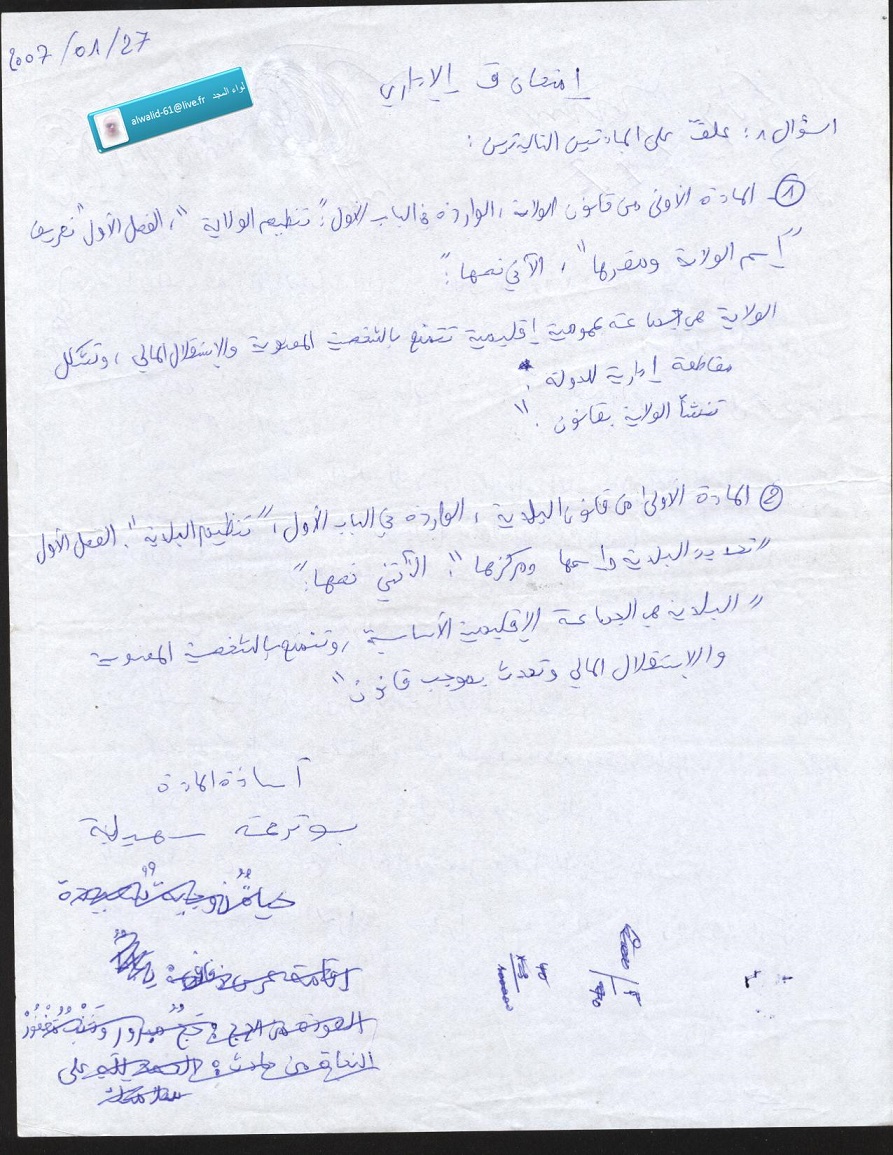 2007/01/27
لواء المجد alwalid-61@live.fr
امتحان ق الإداري
سؤال 1: علق على المادتين التاليتين :
① المادة الأولى من قانون الولاية ، الواردة في الباب الأول: "تنظيم الولاية "، الفصل الأول "تعريف
إسم الولاية ومقرها" ، الآتي نصها :"
الولاية هي جماعة عمومية إقليمية تتمتع بالشخصية المعنوية والاستقلال المالي ، وتشكل
مقاطعة إدارية للدولة .
تنشأ الولاية بقانون . "
② المادة الأولى من قانون البلدية ، الواردة في الباب الأول، "تنظيم البلدية". الفصل الأول
"تحديد البلدية واسمها ومركزها"، الآتي نصها: "
" البلدية هي الجماعة الإقليمية الأساسية ، وتتمتع بالشخصية المعنوية
والاستقلال المالي وتحدث بموجب قانون "
أستاذة المادة
بوترعة سهيلة
حياة زوجية
العودة من الحج : حج مبرور وذنب مغفور
النجاة من حادث : الحمد لله على
سلامتك